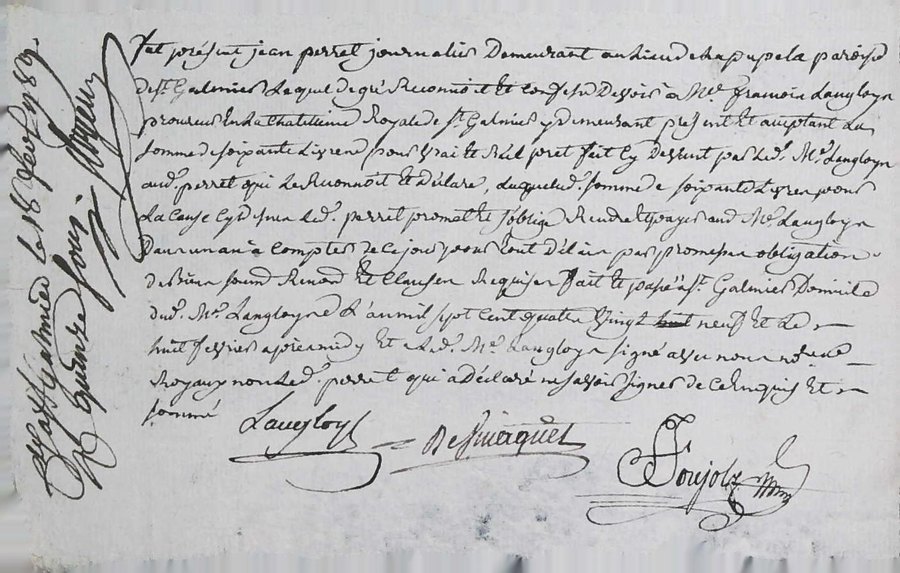 fut présent jean perret journalier Demeurant au lieu de la paroisse
de st. Galmier Lequel de gré Reconnoit et Confesse Devoir a Me. francois Langloys
procureur En La Chatellenie Royale de st. Galmier y demeurant present Et acceptant La
somme de soixante Livres pour vrai et Réel pret fait Cy Devant par Led. Me. Langloys
aud. perret qui Le Reconnoit et Déclare, Laquelle d. somme de soixante Livres pour
La Cause Cy dessus Led. perret promet et s'oblige Rendre et payer aud. Me. Langloys
Dans un an a Compter de Ce jour pour tout Délai par promesse obligation
de Biens soumn Renond Et Clauses Requises fait et passé a st. Galmier Domicile
dud. Me. Langloys L'an mil sept Cent quatre vingt neuf Et Le
huit fevrier apres midy Et a Led. Me. Langloys signé avec nous
Royaux non Led. perret qui a Déclaré ne savoir signer de Ce Enquis Et
sommé
Langloys
Ponjols
a st. Galmier le 18 1789
Reçu quinze sous